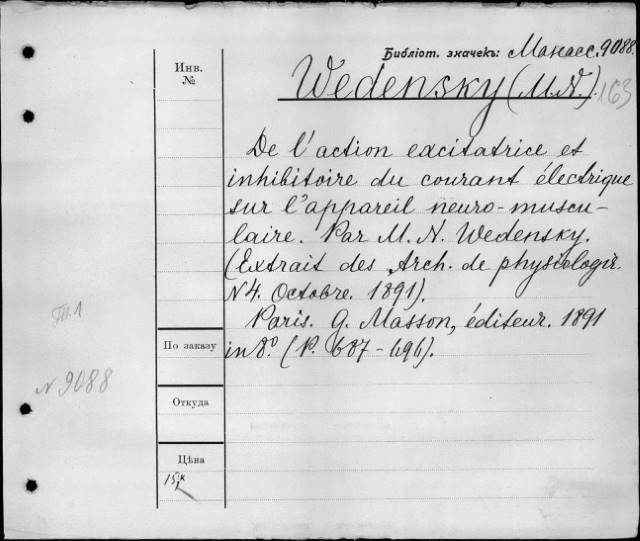 Библіот. значекъ: Манасс. 9088.
Инв.
№
Wedensky (M. N.). 163
De l'action excitatrice et
inhibitoire du courant électrique
sur l'appareil neuro-muscu-
laire. Par M. N. Wedensky.
(Extrait des Arch. de physiologie.
N 4. Octobre. 1891).
Paris. G. Masson, éditeur. 1891
in 8º. (P. 687-696).
По заказу
N 9088
Откуда
Цѣна
15 к